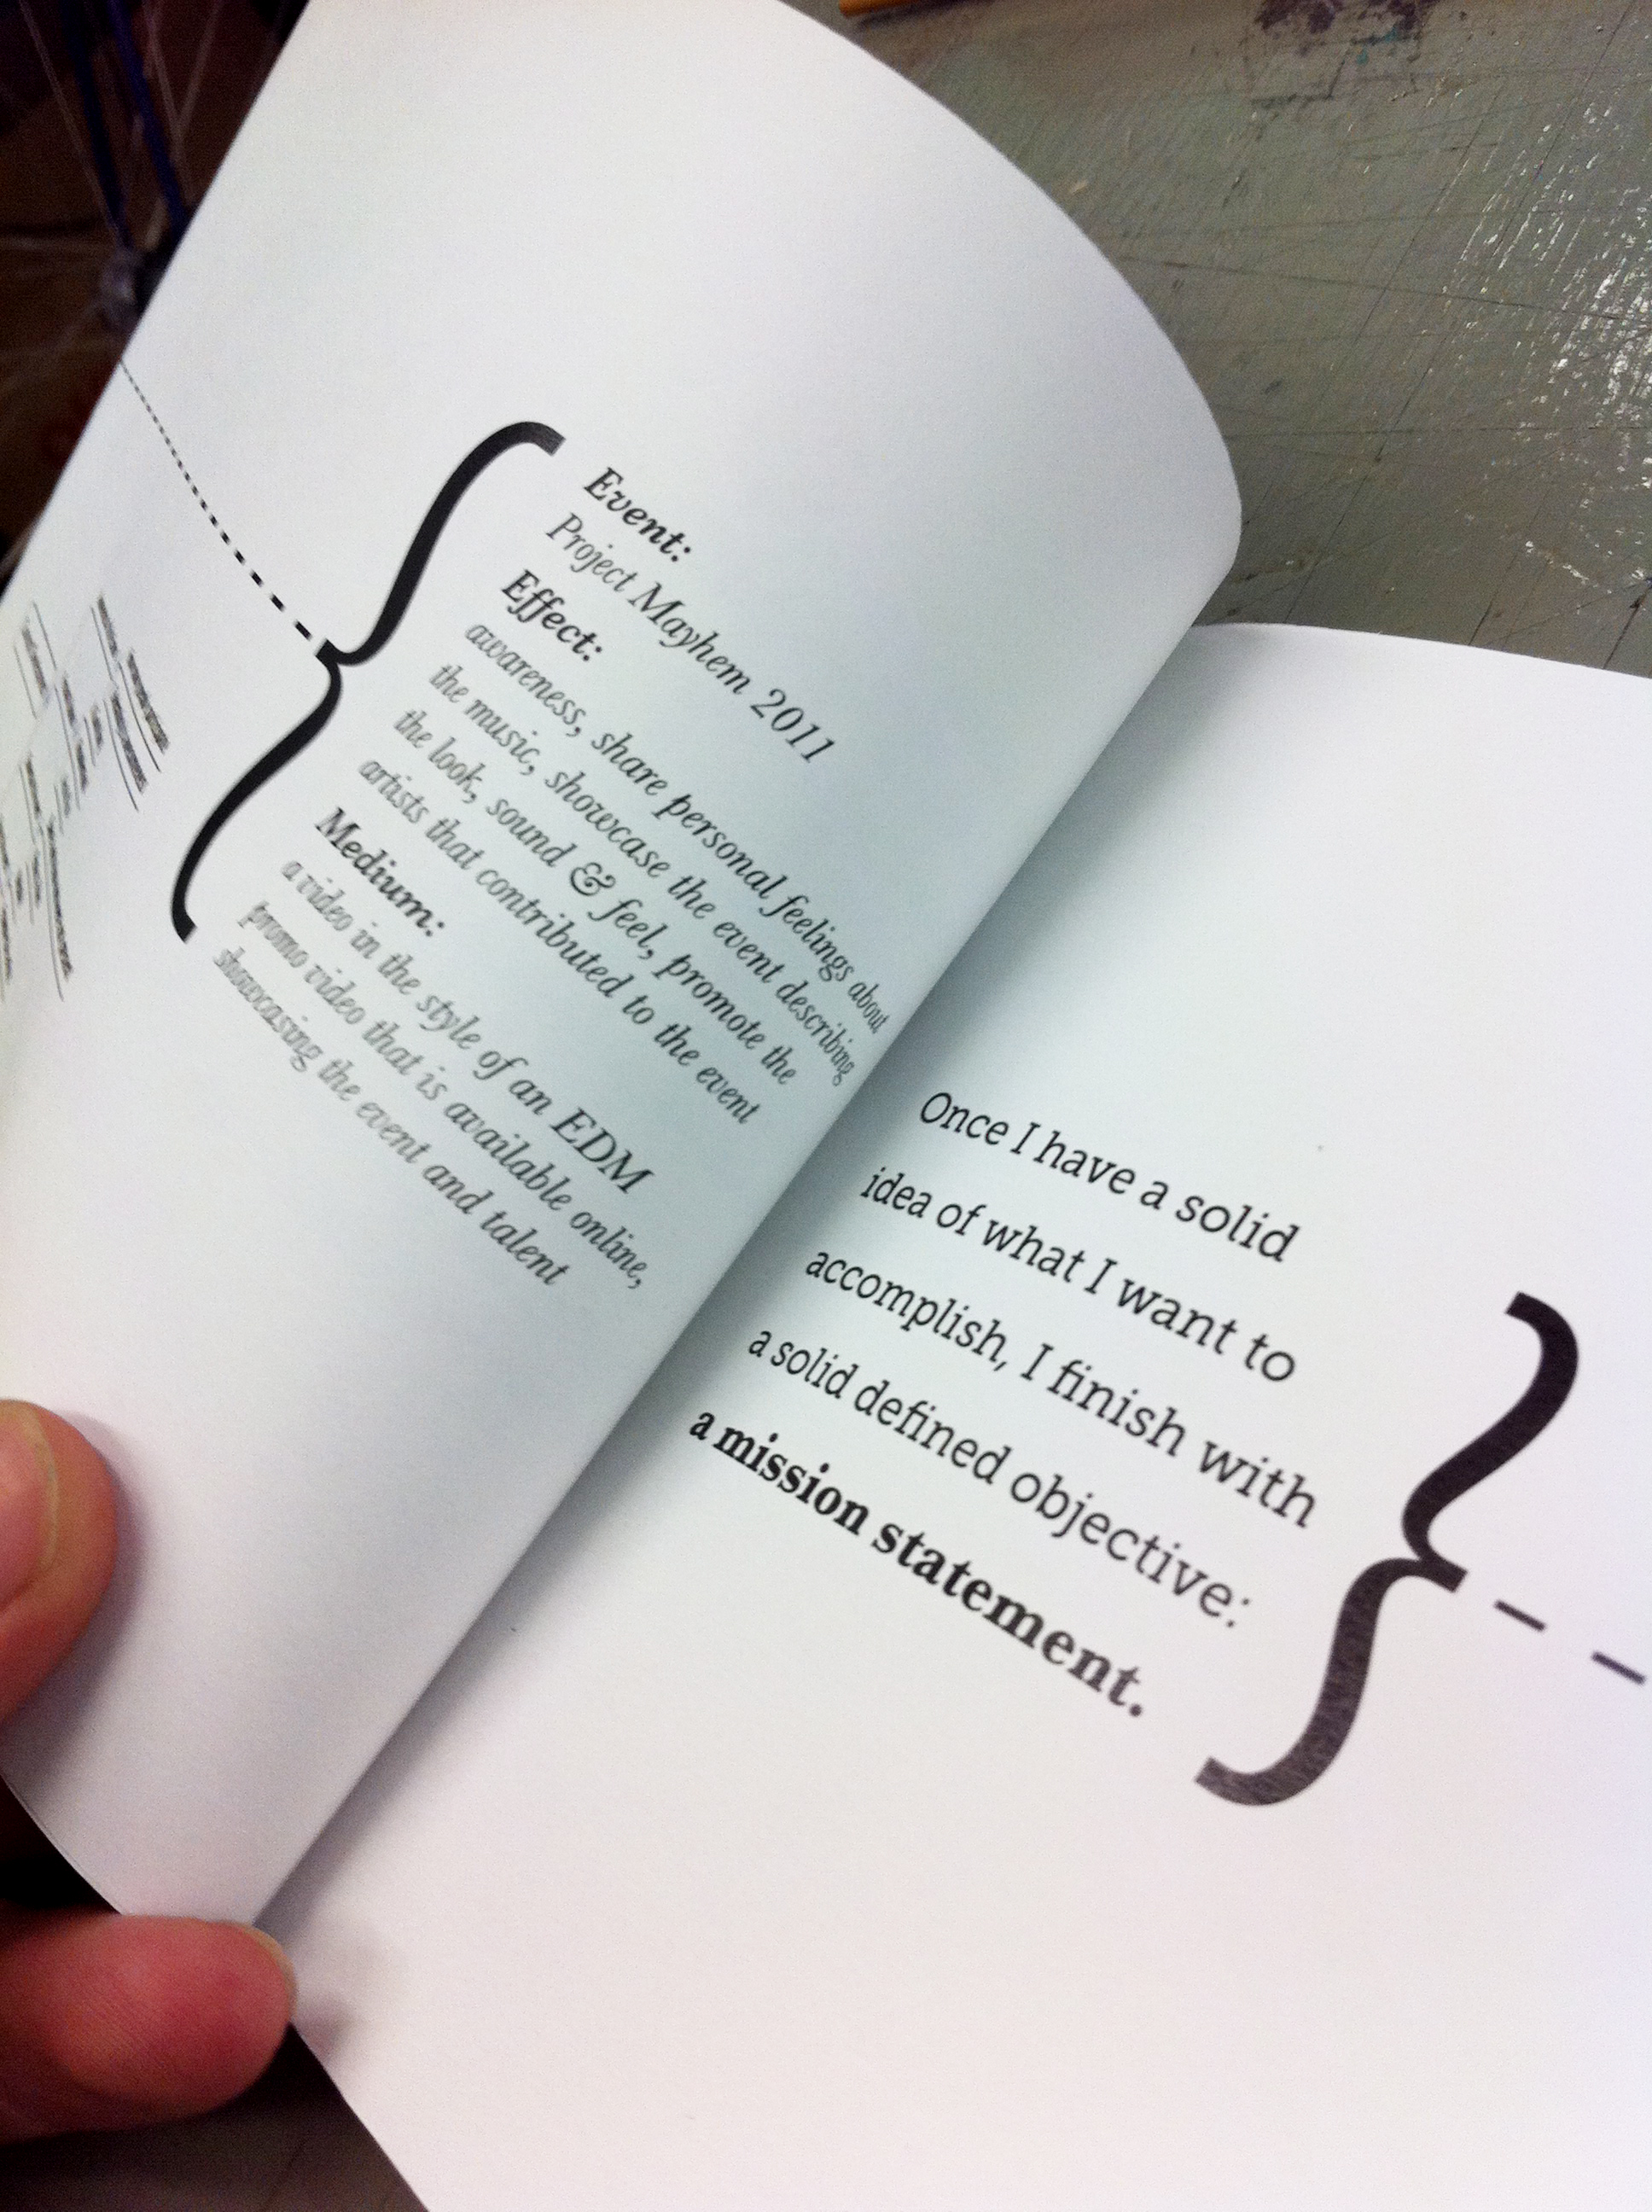 Event:
Project Mayhem 2011
Effect:
awareness, share personal feelings about
the music, showcase the event describing
the look, sound & feel, promote the
artists that contributed to the event
Medium:
a video in the style of an EDM
promo video that is available online,
showcasing the event and talent
Once I have a solid
idea of what I want to
accomplish, I finish with
a solid defined objective:
a mission statement.